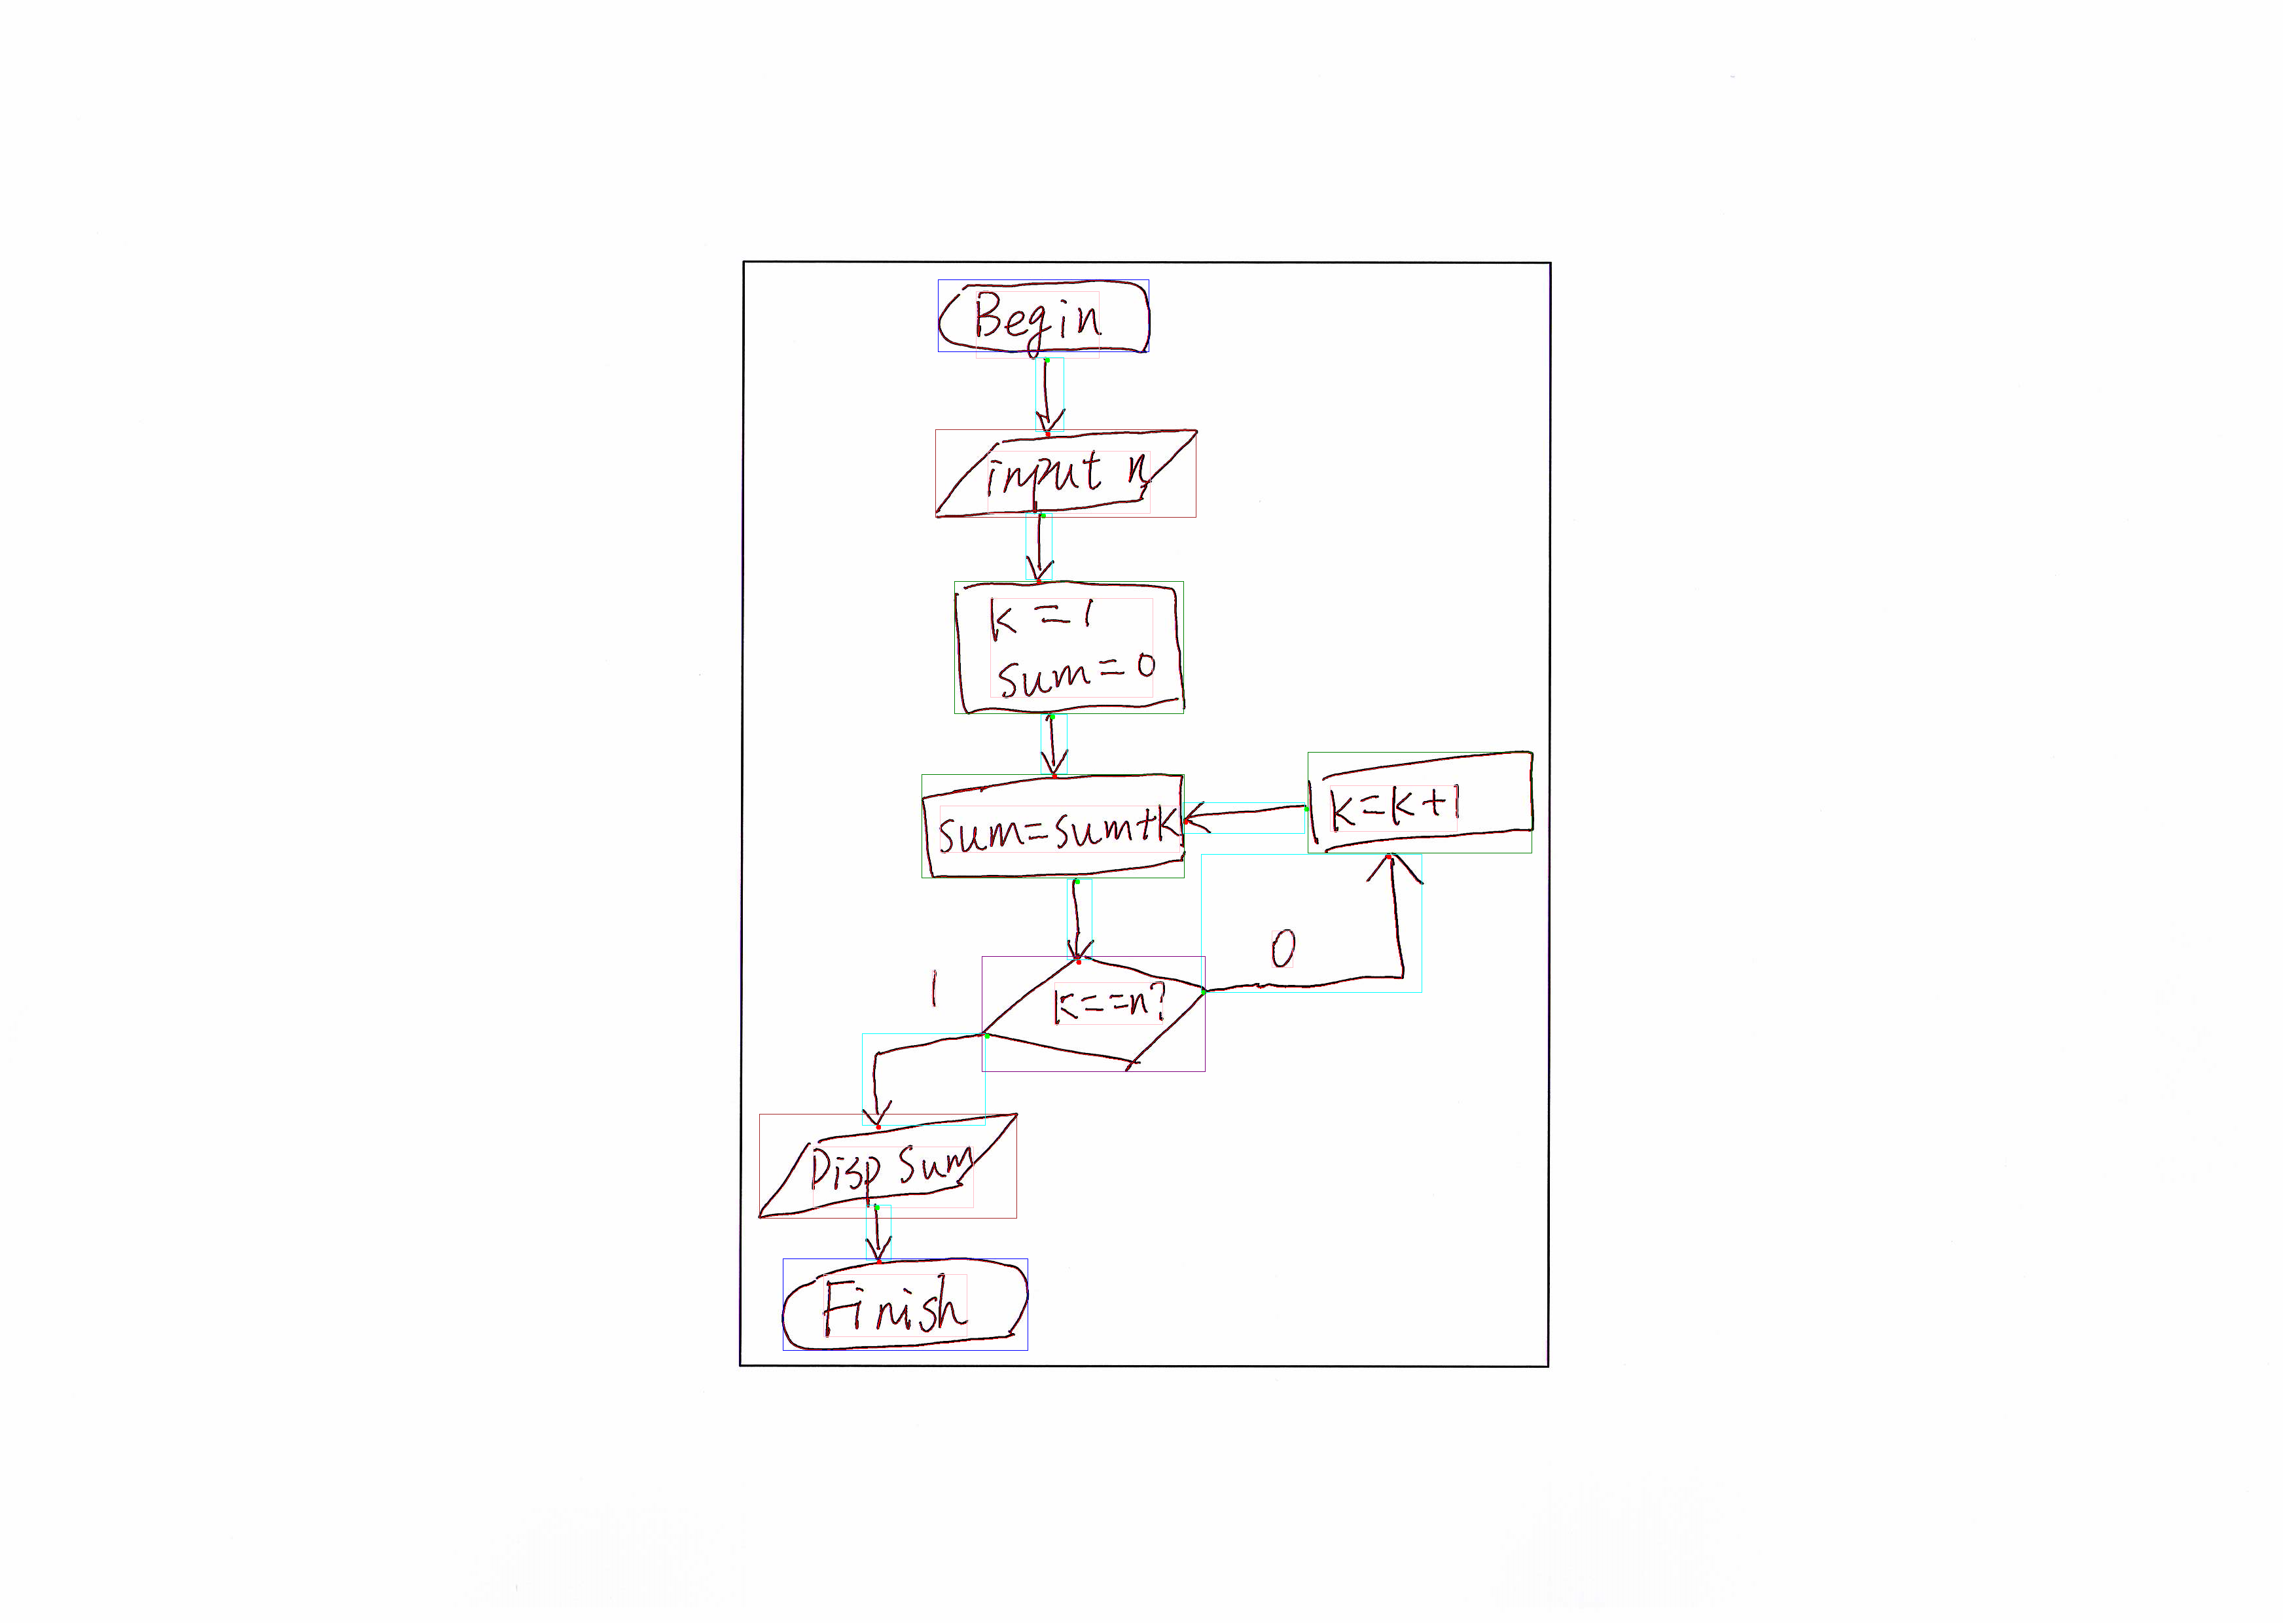 Begin
input n
k=1
sum=0
sum=sum+k
k=k+1
0
1
k==n?
Disp Sum
Finish